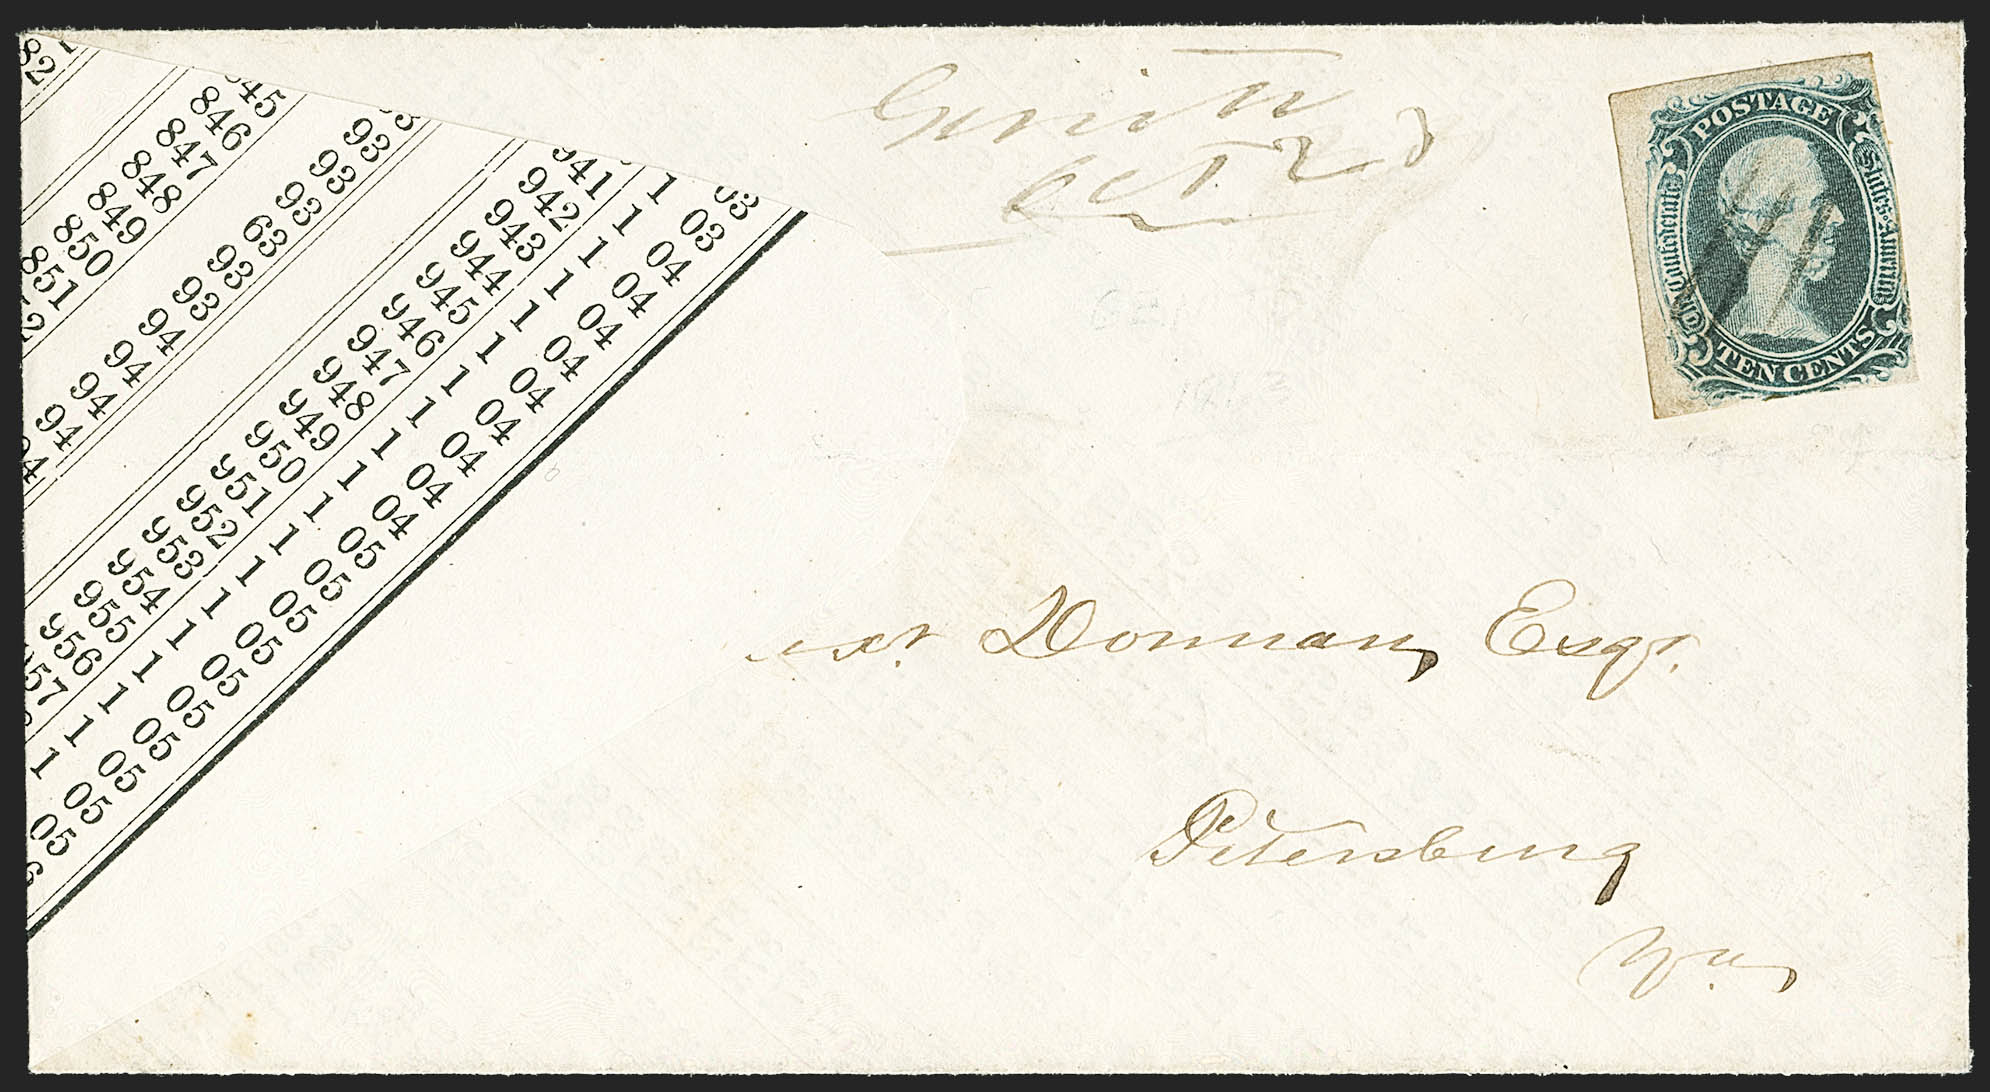 82
845
846
847
848
849
850
851
93
93
93
63
93
93
94
94
94
94
94
941 1 03
942 1 03
943 1 04
944 1 04
945 1 04
946 1 04
947 1 04
948 1 04
949 1 04
950 1 04
951 1 04
952 1 05
953 1 05
954 1 05
955 1 05
956 1 05
957 1 05
1 05
05
Oct 28
POSTAGE
The Confederate States of America
TEN CENTS
1863
Donnan, Esqr.
Petersburg
Va.